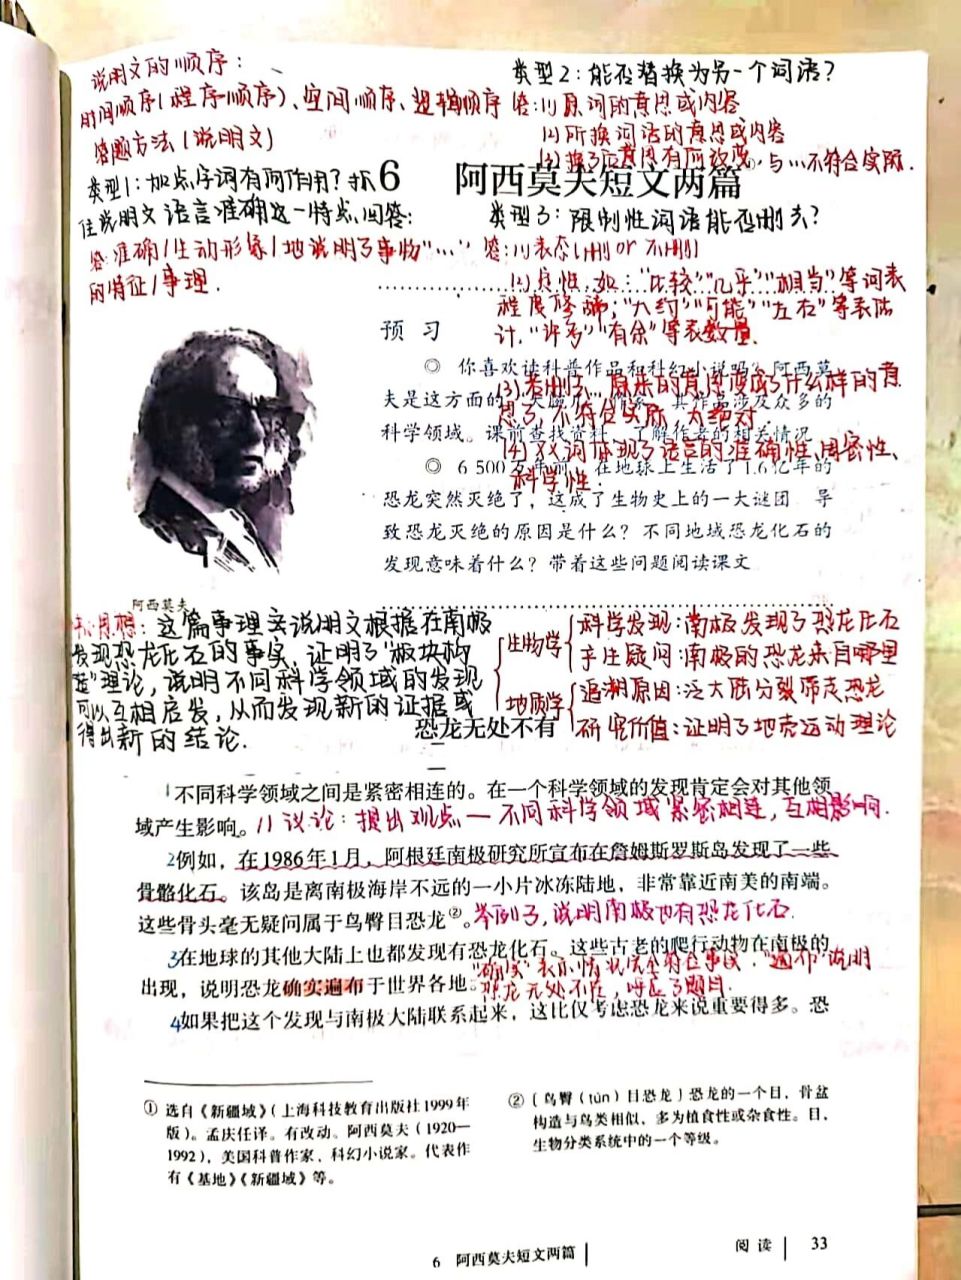 说明文的顺序：
时间顺序（程序顺序）、空间顺序、逻辑顺序
答题方法（说明文）
类型1：加点字词有何作用？抓
住说明文语言准确这一特点，回答：
答：准确/生动形象/地说明了事物"…"
的特征/事理．
类型2：能否替换为另一个词语？
答：(1)原词的意思或内容
(2)所换词语的意思或内容
(3)换了后意思有何改变，与…不符合实际．
6 阿西莫夫短文两篇
类型3：限制性词语能否删去？
答：(1)表态（删 or 不删）
(2)定性．如："比较""几乎""相当"等词表
程度修饰；"大约""可能""左右"等表估
计，"许多""有余"等表数量．
(3)若删了，原来的意思变成了什么样的意
思了，不符合实际，太绝对
(4)××词体现了语言的准确性、周密性、
科学性．
预 习
◎ 你喜欢读科普作品和科幻小说吗？阿西莫
夫是这方面的 其作品涉及众多的
科学领域。课前查找资料，了解作者的相关情况
◎ 6 500万年前，在地球上生活了1.6亿年的
恐龙突然灭绝了，这成了生物史上的一大谜团。导
致恐龙灭绝的原因是什么？不同地域恐龙化石的
发现意味着什么？带着这些问题阅读课文
阿西莫夫
这篇事理类说明文根据在南极
发现恐龙化石的事实，证明了"板块构
造"理论，说明不同科学领域的发现
可以互相启发，从而发现新的证据或
得出新的结论．
生物学
科学发现：南极发现了恐龙化石
产生疑问：南极的恐龙来自哪里
地质学
追溯原因：泛大陆分裂带走恐龙
研究价值：证明了地壳运动理论
恐龙无处不有
1不同科学领域之间是紧密相连的。在一个科学领域的发现肯定会对其他领
域产生影响。 //议论：提出观点—不同科学领域紧密相连，互相影响．
2例如，在1986年1月，阿根廷南极研究所宣布在詹姆斯罗斯岛发现了一些
骨骼化石。该岛是离南极海岸不远的一小片冰冻陆地，非常靠近南美的南端。
这些骨头毫无疑问属于鸟臀目恐龙②。举例子，说明南极也有恐龙化石．
3在地球的其他大陆上也都发现有恐龙化石。这些古老的爬行动物在南极的
"确实"表示情况完全符合事实．"遍布"说明
出现，说明恐龙确实遍布于世界各地。
恐龙无处不在，呼应了题目．
4如果把这个发现与南极大陆联系起来，这比仅考虑恐龙来说重要得多。恐
① 选自《新疆域》（上海科技教育出版社1999年
版）。孟庆任译。有改动。阿西莫夫（1920—
1992），美国科普作家、科幻小说家。代表作
有《基地》《新疆域》等。
② 〔鸟臀（tún）目恐龙〕恐龙的一个目，骨盆
构造与鸟类相似，多为植食性或杂食性。目，
生物分类系统中的一个等级。
6 阿西莫夫短文两篇
阅 读 33